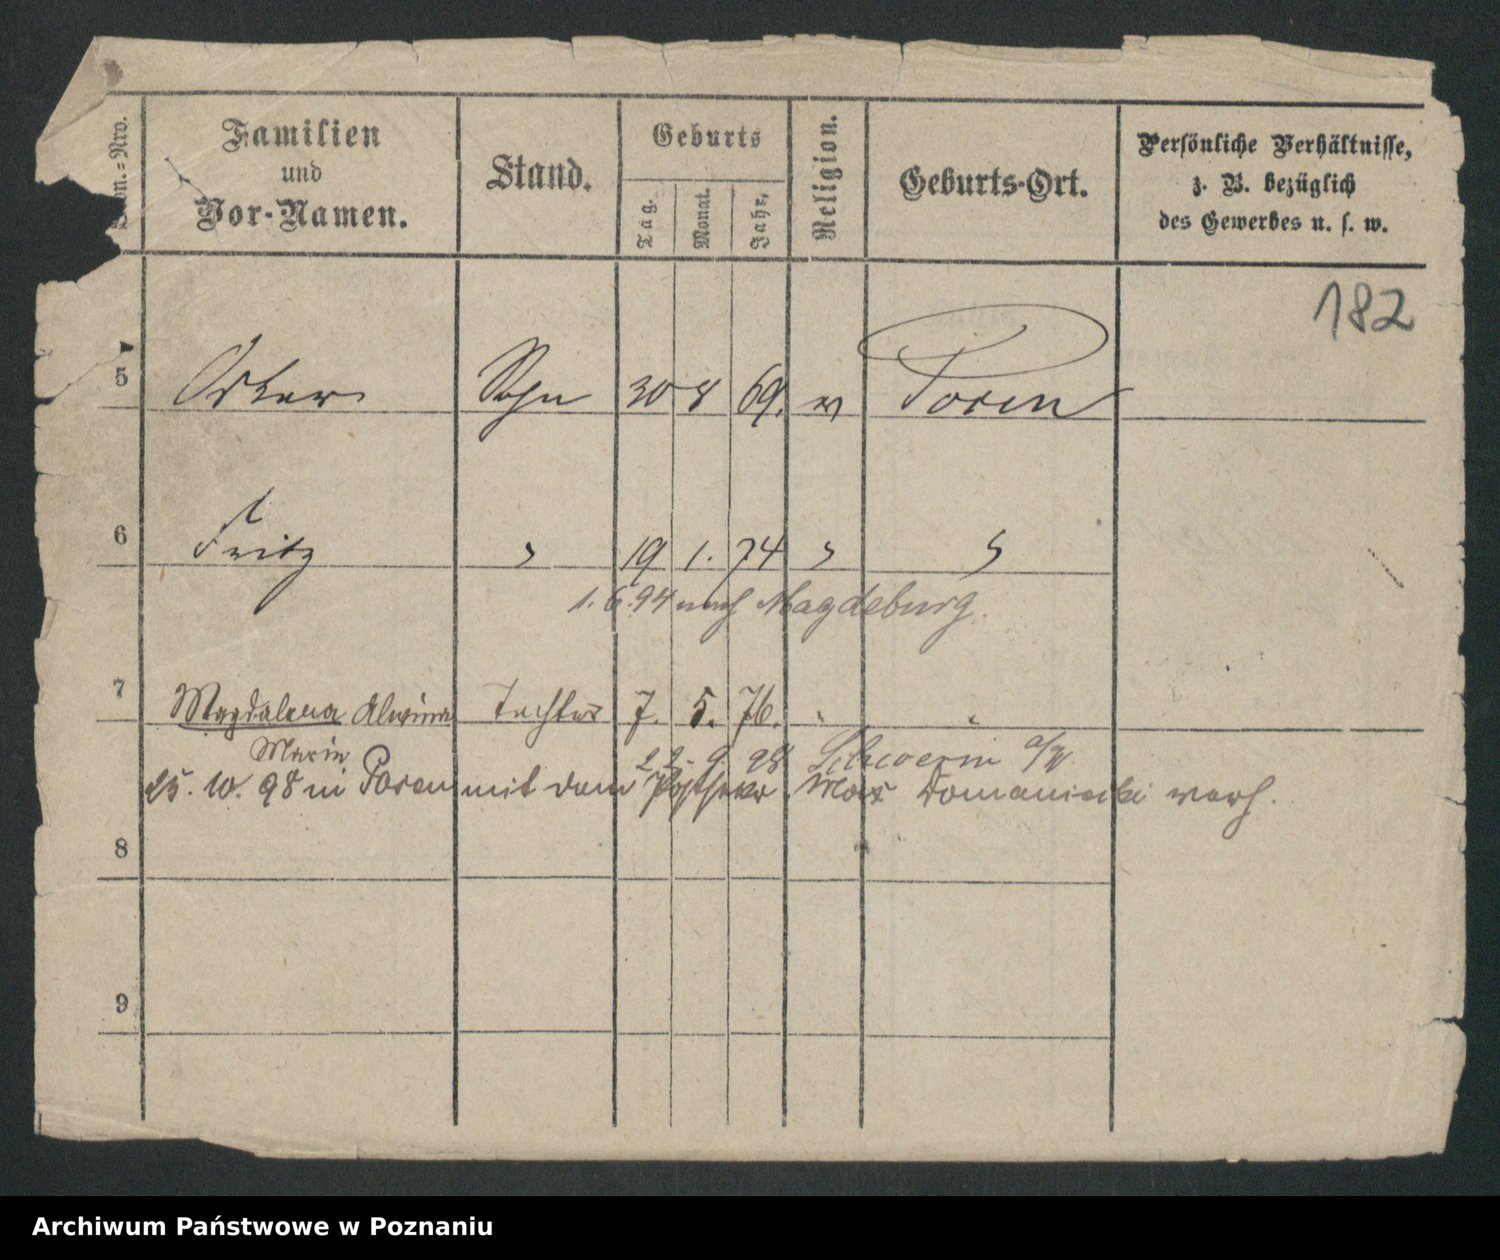 Familien
und
Vor-Namen.
Stand.
Geburts
Tag.
Monat.
Jahr,
Religion.
Geburts-Ort.
Persönliche Verhältnisse,
z. B. bezüglich
des Gewerbes u. s. w.
182
5 Oskar Sohn 30 8 69. ev Posen
6 Fritz " 19 1. 74 " "
1. 6. 94 nach Magdeburg.
7 Magdalena Alwina Tochter 7. 5. 76. " "
Marie 22. 9. 98 Schwerin a/W.
25. 10. 98 in Posen mit dem Max Domaniecki verh.
8
9
Archiwum Państwowe w Poznaniu